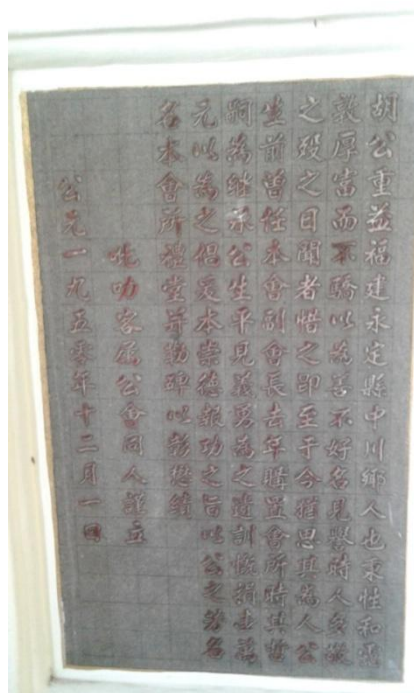 胡公重益福建永定縣中川鄉人也秉性和遜
敦厚富而不驕以為善不好名見譽時人矣故
之歿之日聞者惜之即至于今猶思其為人公
生前曾任本會副會長去年購置會所時其哲
嗣為繼承公生平見義勇為之遺訓慨捐壹萬
元以為之倡爰本崇德報功之旨以公之芳名
名本會所禮堂并勒碑以彰懋績
吡叻客屬公會同人謹立
公元一九五零年十二月一日